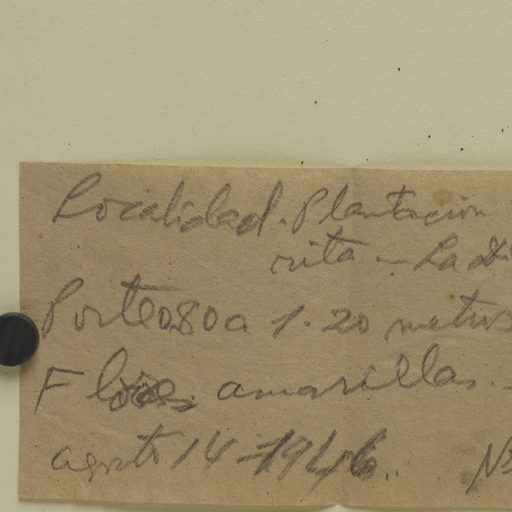 Localidad. Plantacion
rita - La
Porte 0.80 a 1.20 metros
Flores amarillas. -
agosto 14 - 1946.